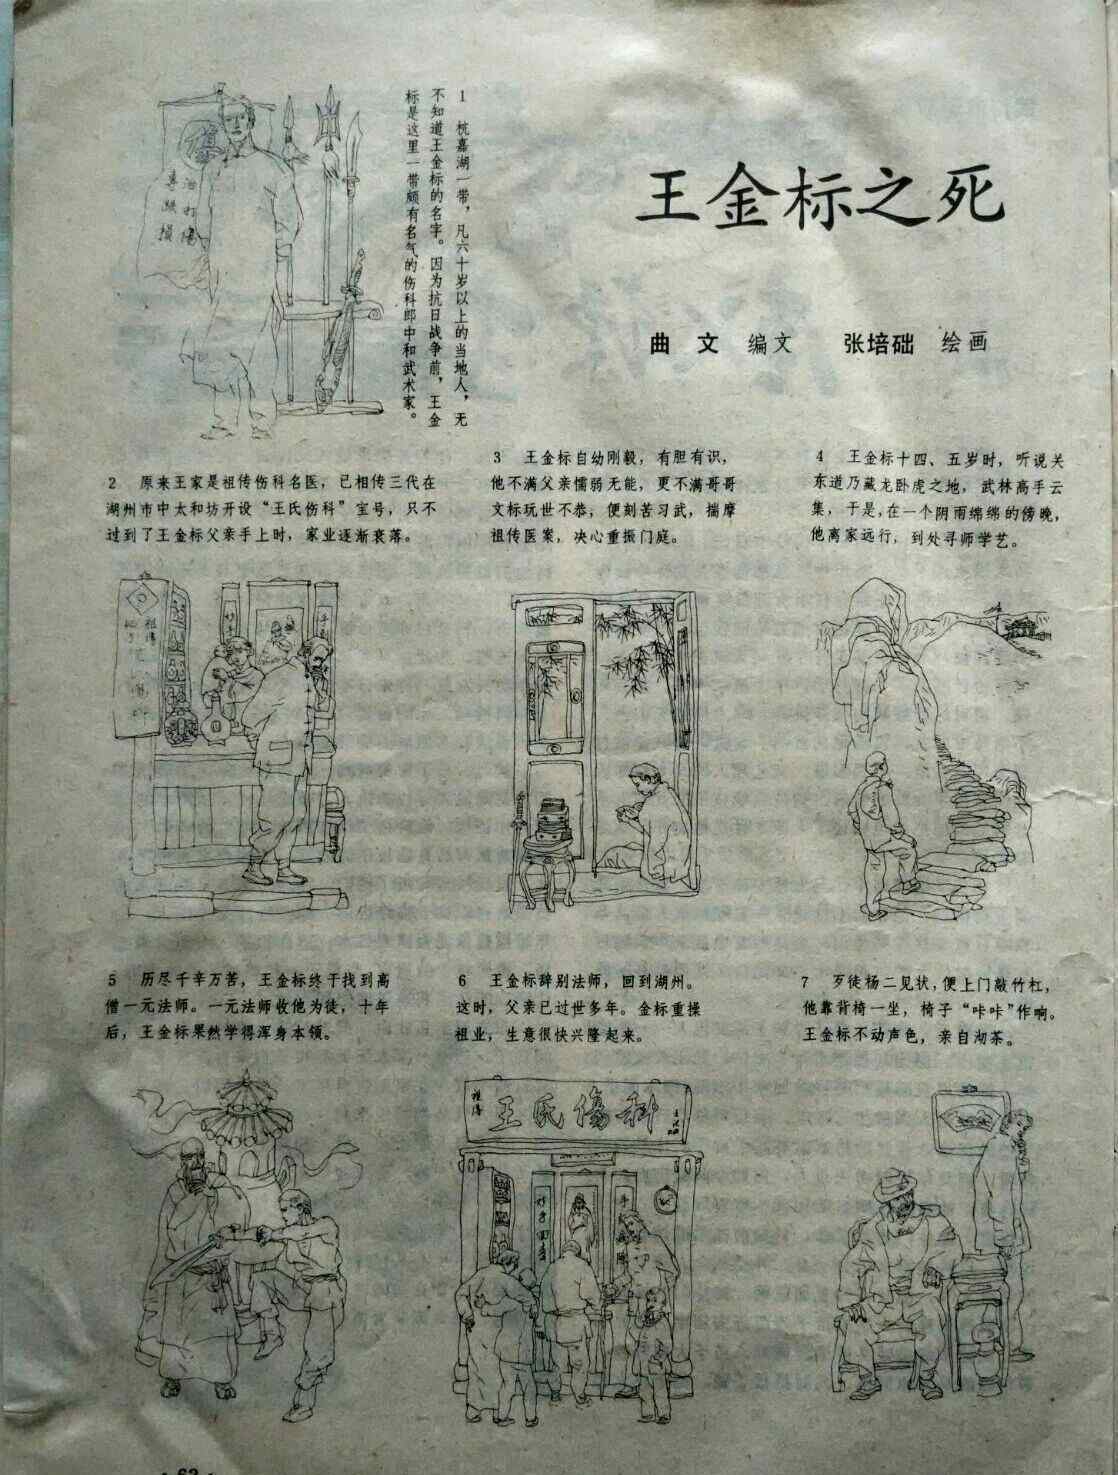 王金标之死
曲 文 编文 张培础 绘画
1 杭嘉湖一带，凡六十岁以上的当地人，无
不知道王金标的名字。因为抗日战争前，王金
标是这里一带颇有名气的伤科郎中和武术家。
2 原来王家是祖传伤科名医，已相传三代在
湖州市中太和坊开设“王氏伤科”宝号，只不
过到了王金标父亲手上时，家业逐渐衰落。
3 王金标自幼刚毅，有胆有识，
他不满父亲懦弱无能，更不满哥哥
文标玩世不恭，便刻苦习武，揣摩
祖传医案，决心重振门庭。
4 王金标十四、五岁时，听说关
东道乃藏龙卧虎之地，武林高手云
集，于是，在一个阴雨绵绵的傍晚，
他离家远行，到处寻师学艺。
祖傳
5 历尽千辛万苦，王金标终于找到高
僧一元法师。一元法师收他为徒，十年
后，王金标果然学得浑身本领。
6 王金标辞别法师，回到湖州。
这时，父亲已过世多年。金标重操
祖业，生意很快兴隆起来。
7 歹徒杨二见状，便上门敲竹杠，
他靠背椅一坐，椅子“咔咔”作响。
王金标不动声色，亲自沏茶。
祖傳
王氏傷科
妙手回春
· 62 ·